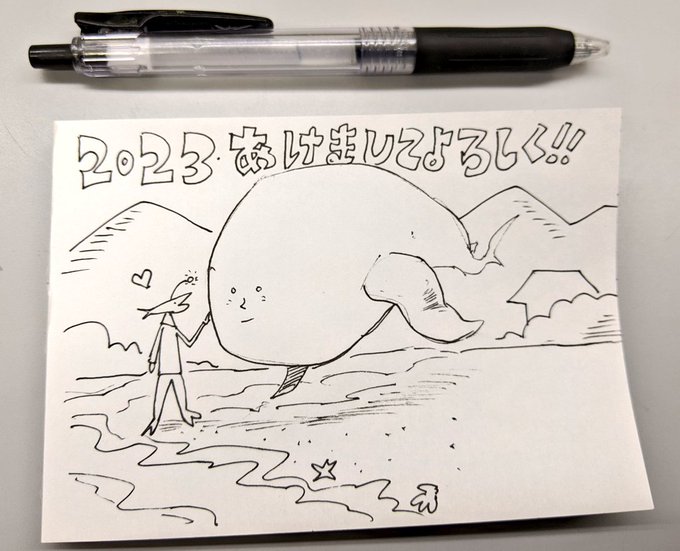 2023.あけましてよろしく!!